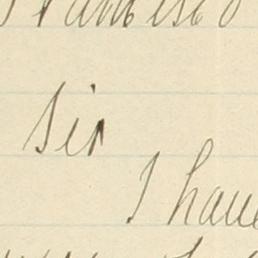 Francisco
Sir
I have